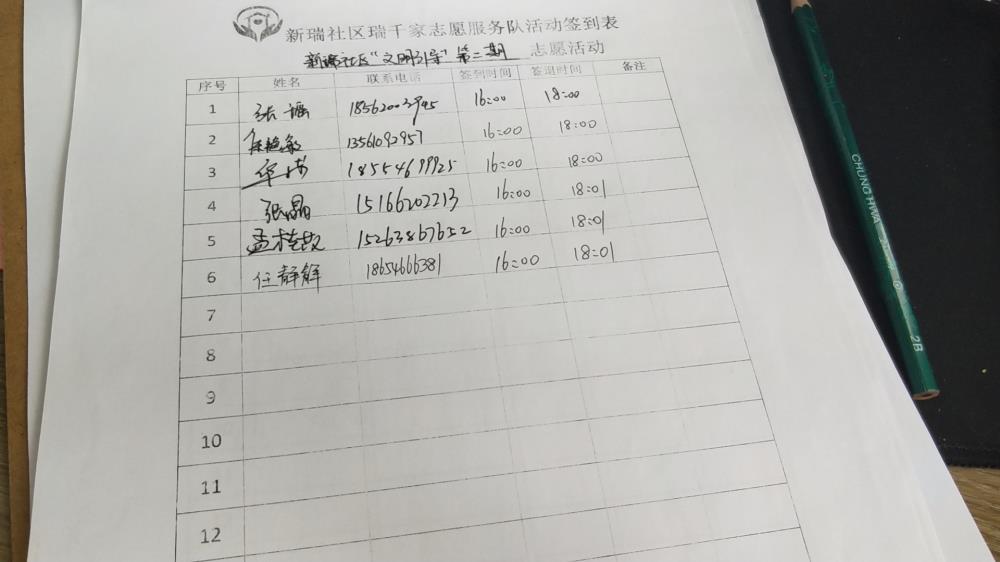 新瑞社区瑞千家志愿服务队活动签到表
新瑞社区“文明引导”第二期 志愿活动
序号 姓名 联系电话 签到时间 签退时间 备注
1 张 16:00 18:00
2 13561092957 16:00 18:00
3 华 18554699925 16:00 18:00
4 张晶 15166202213 16:00 18:01
5 孟 15263867652 16:00 18:01
6 任静解 1865466381 16:00 18:01
7
8
9
10
11
12
CHUNG HWA
2B